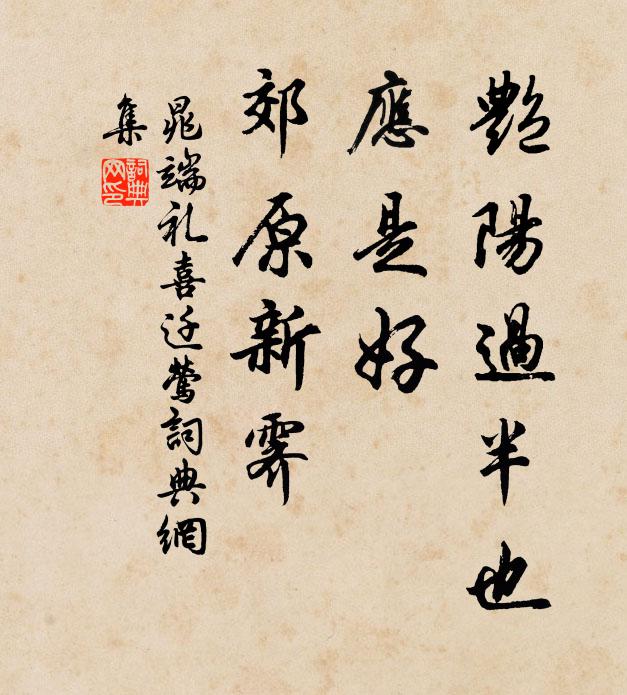 艷陽過半也
應是好
郊原新霽
晁端礼喜迁鶯詞典網
集
詞典
网印